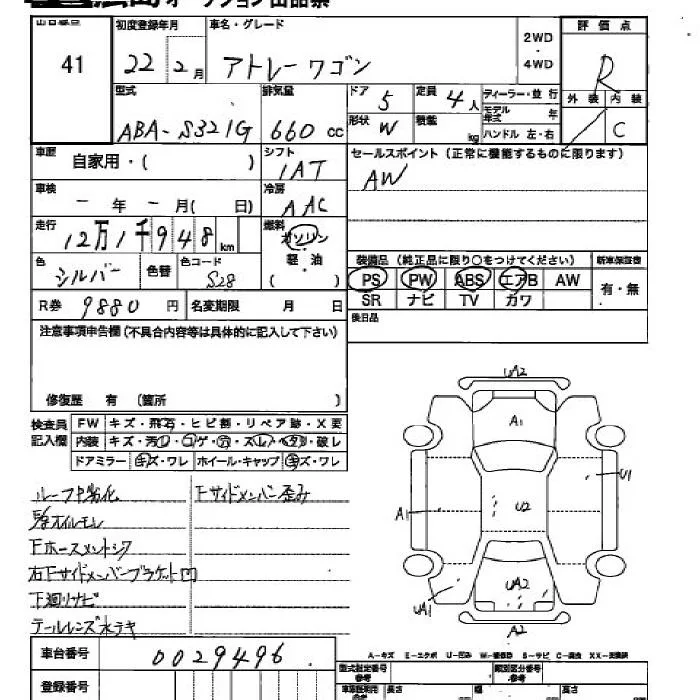 オークション出品票
出品番号 初度登録年月 車名・グレード 2WD・4WD 評価点
41 22年 2月 アトレーワゴン R
型式 ABA-S321G 排気量 660cc ドア 5 定員 4人 ディーラー・並行 外装 内装
形状 W 積載 kg モデル年式 年 ハンドル 左・右 C
車歴 自家用・( ) シフト 1AT セールスポイント(正常に機能するものに限ります)
車検 - 年 - 月( 日) 冷房 AAC AW
走行 12万1千948km 燃料 ガソリン・軽油 ( )
色 シルバー 色替 色コード S28
装備品(純正品に限り○をつけてください) 新車保証書
PS PW ABS エアB AW 有・無
SR ナビ TV カワ
R券 9880円 名変期限 月 日 後日品
注意事項申告欄(不具合内容等は具体的に記入して下さい)
修復歴 有 (箇所 )
検査員記入欄 FW キズ・飛石・ヒビ割・リペア跡・X要
内装 キズ・汚レ・コゲ・穴・スレ・ ・破レ
ドアミラー キズ・ワレ ホイール・キャップ キズ・ワレ
ルーフ中劣化 Fサイドメンバー歪み
オイルモレ
右Fサイドメンバーブラケット凹
下廻リサビ
テールレンズ水テキ
UA2
A1
U1
A1
U2
UA2
UA1
A2
車台番号 0029496
A-キズ E-エクボ U-凹み W-補修跡 S-サビ C-腐食 XX-交換済
登録番号
型式指定番号 参考 類別区分番号 参考
長さ 幅 高さ